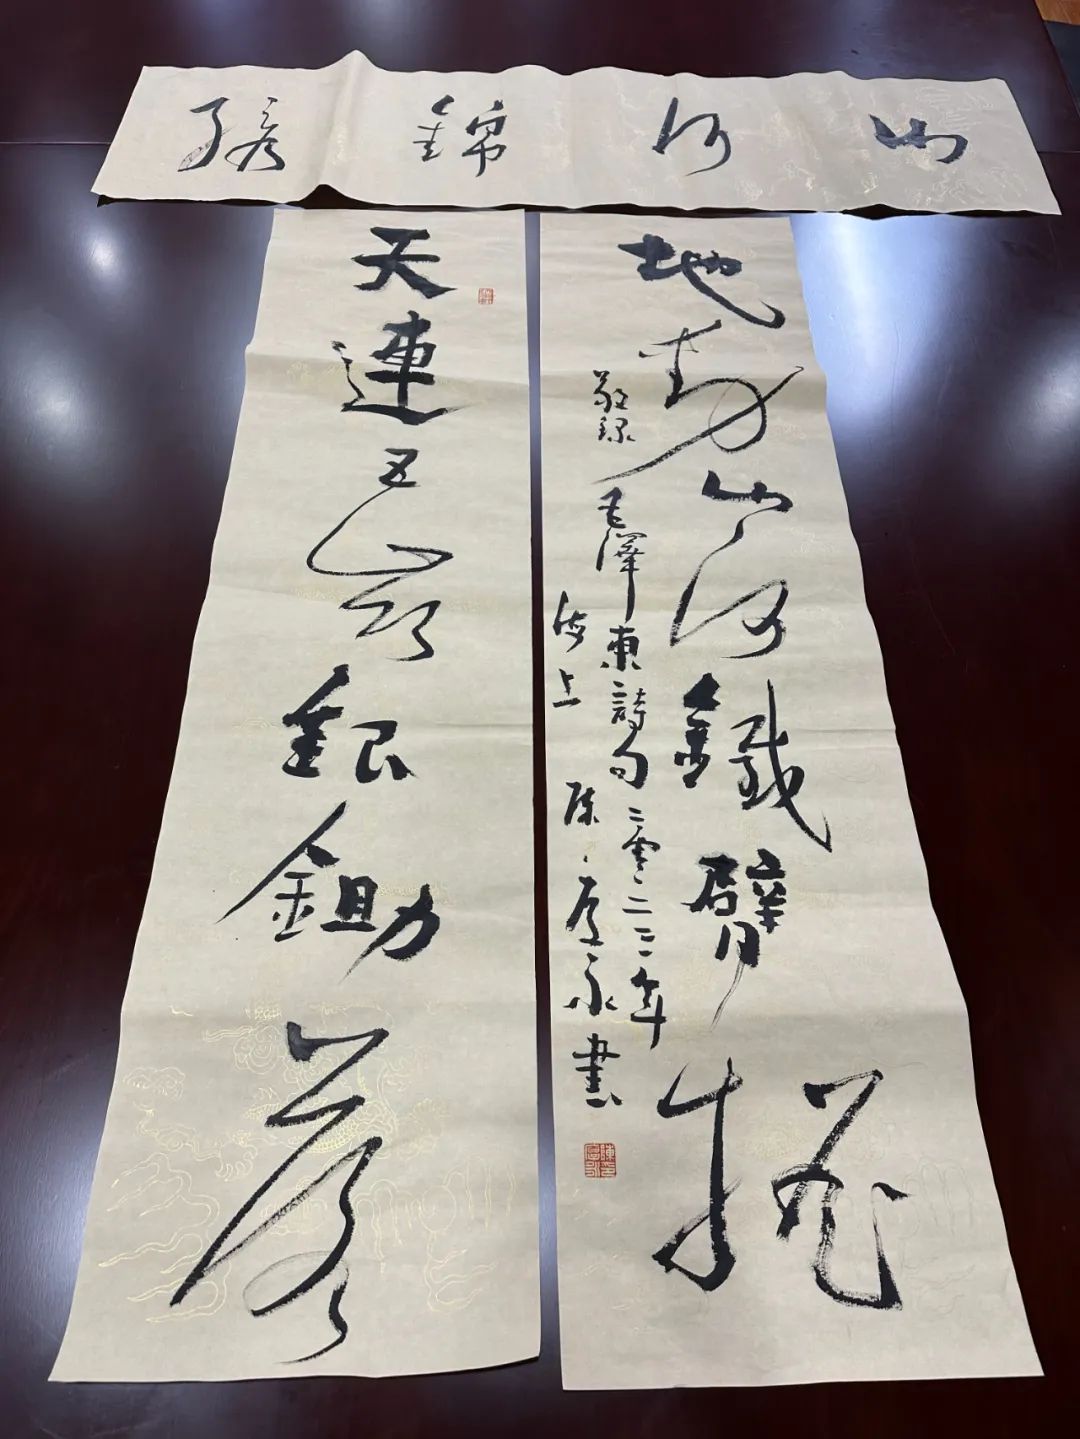 山河錦繡
天連五嶺銀鋤落
地動山河鐵臂搖
敬録毛澤東詩句二零二二年
海上陳永書